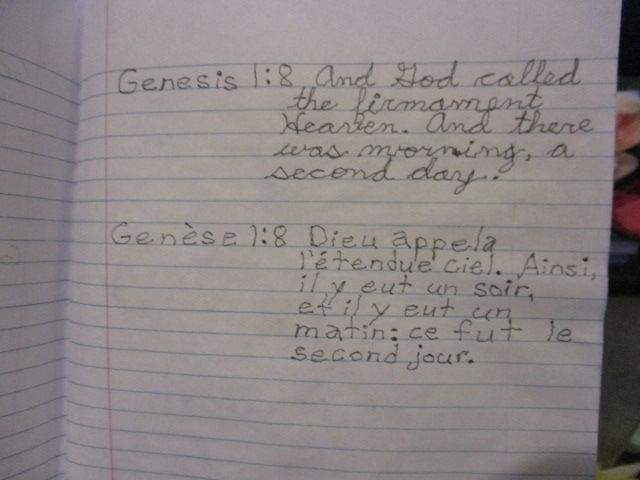 Genesis 1:8 And God called
the firmament
Heaven. And there
was morning, a
second day.
Genèse 1:8 Dieu appela
l'étendue ciel. Ainsi,
il y eut un soir,
et il y eut un
matin: ce fut le
second jour.